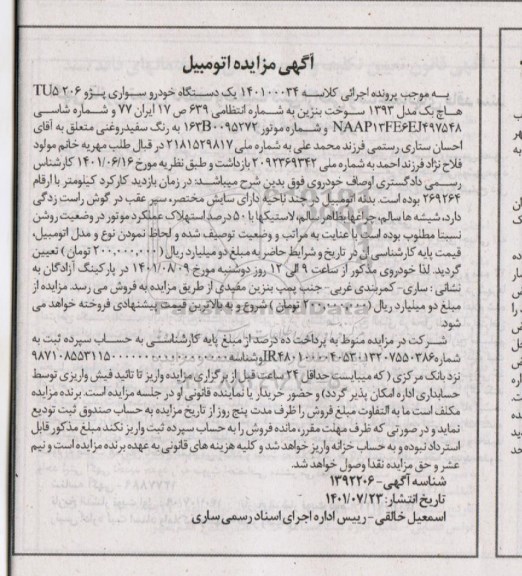 آگهی مزایده اتومبیل
به موجب پرونده اجرائی کلاسه ۱۴۰۱۰۰۰۳۴ یک دستگاه خودرو سواری پژو ۲۰۶ TU۵
هاچ بک مدل ۱۳۹۳ سوخت بنزین به شماره انتظامی ۶۳۹ ص ۱۷ ایران ۷۷ و شماره شاسی
NAAP۱۳FE۶EJ۴۹۷۵۴۸ و شماره موتور ۱۶۳B۰۰۹۵۲۷۲ به رنگ سفیدروغنی متعلق به آقای
احسان ستاری رستمی فرزند محمد علی به شماره ملی ۲۱۸۱۵۲۹۸۱۷ در قبال طلب مهریه خانم مولود
فلاح نژاد فرزند احمد به شماره ملی ۲۰۹۲۳۶۹۳۴۲ بازداشت و طبق نظریه مورخ ۱۴۰۱/۰۶/۱۶ کارشناس
رسمی دادگستری اوصاف خودروی فوق بدین شرح میباشد: در زمان بازدید کارکرد کیلومتر با ارقام
۲۶۹۲۶۴ بوده است. بدنه اتومبیل در چند ناحیه دارای سایش مختصر، سپر عقب در گوش راست زدگی
دارد، شیشه ها سالم، چراغها بظاهر سالم، لاستیکها با ۵۰ درصد استهلاک عملکرد موتور در وضعیت روشن
نسبتا مطلوب بوده است با عنایت به مراتب و وضعیت توصیف شده و لحاظ نمودن نوع و مدل اتومبیل،
قیمت پایه کارشناسی آن در تاریخ و شرایط حاضر به مبلغ دو میلیارد ریال (۲۰۰,۰۰۰,۰۰۰ تومان) تعیین
گردید. لذا خودروی مذکور از ساعت ۹ الی ۱۲ روز دوشنبه مورخ ۱۴۰۱/۰۸/۰۹ در پارکینگ آزادگان به
نشانی: ساری- کمربندی غربی- جنب پمپ بنزین مفیدی از طریق مزایده به فروش می رسد. مزایده از
مبلغ دو میلیارد ریال (۲۰۰,۰۰۰,۰۰۰ تومان) شروع و به بالاترین قیمت پیشنهادی فروخته خواهد می
شود.
شرکت در مزایده منوط به پرداخت ده درصد از مبلغ پایه کارشناسی به حساب سپرده ثبت به
نزد بانک مرکزی (که میبایست حداقل ۲۴ ساعت قبل از برگزاری مزایده واریز تا تائید فیش واریزی توسط
حسابداری اداره امکان پذیر گردد) و حضور خریدار یا نماینده قانونی او در جلسه مزایده است. برنده مزایده
مکلف است ما به التفاوت مبلغ فروش را ظرف مدت پنج روز از تاریخ مزایده به حساب صندوق ثبت تودیع
نماید و در صورتی که ظرف مهلت مقرر، مانده فروش را به حساب سپرده ثبت واریز نکند مبلغ مذکور قابل
استرداد نبوده و به حساب خزانه واریز خواهد شد و کلیه هزینه های قانونی به عهده برنده مزایده است و نیم
عشر و حق مزایده نقدا وصول خواهد شد.
شناسه آگهی- ۱۳۹۲۲۰۶
تاریخ انتشار: ۱۴۰۱/۰۷/۲۳
اسمعیل خالقی- رییس اداره اجرای اسناد رسمی ساری